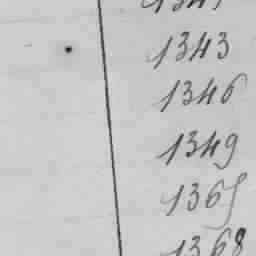 1343
1346
1349
1365
1368